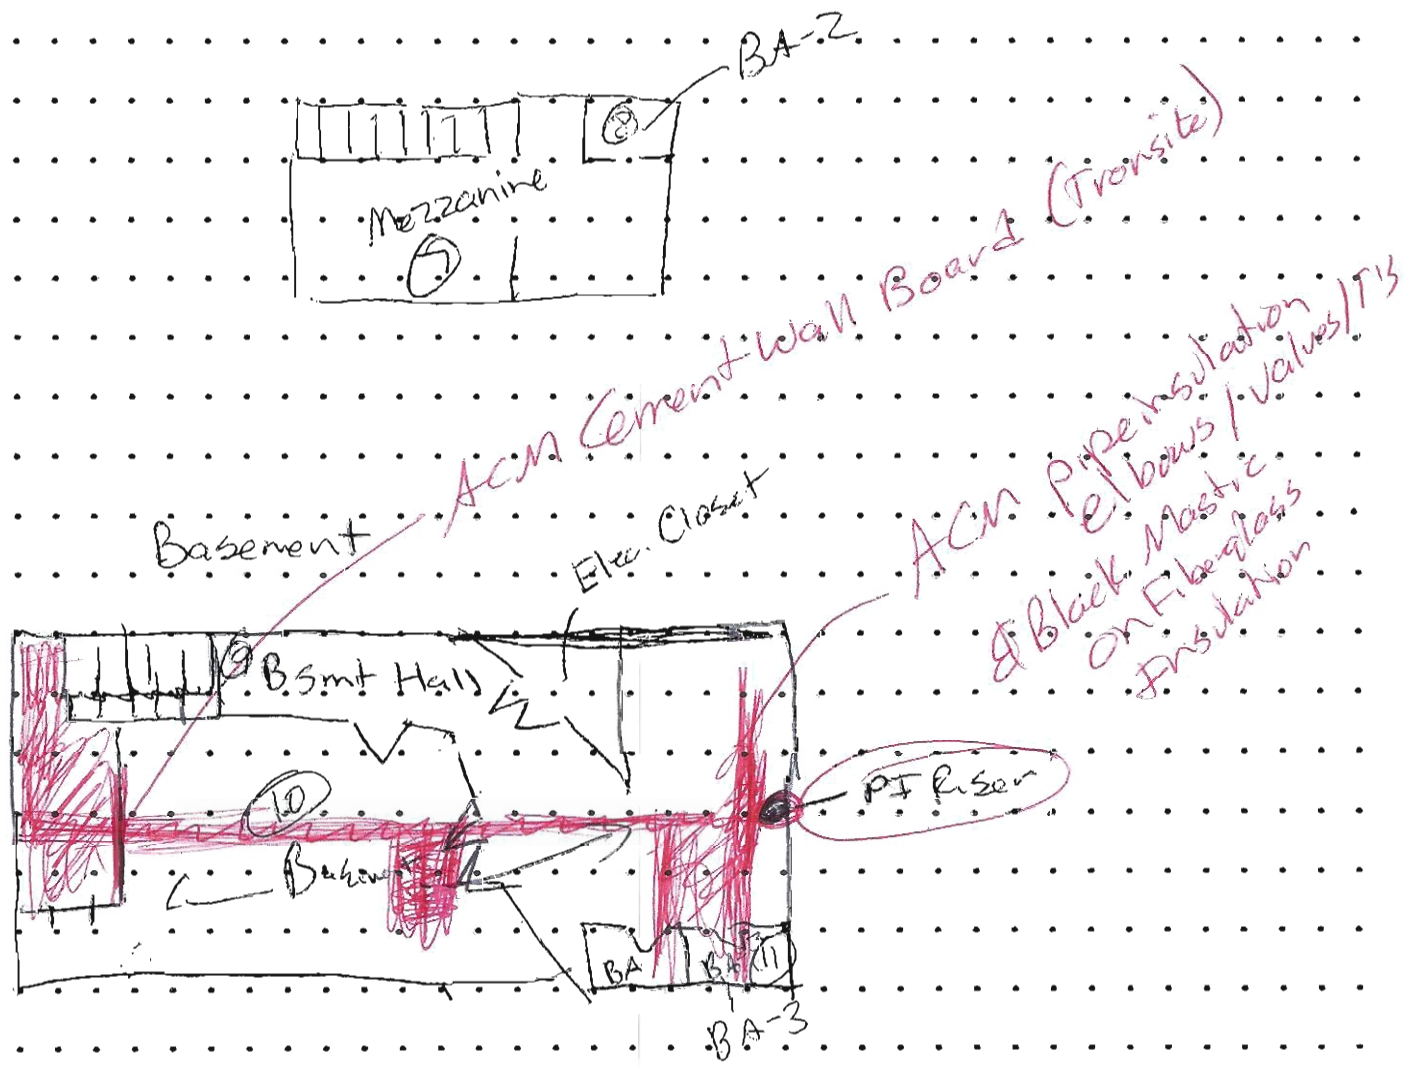 BA-2
8
Mezzanine
7
ACM Cement Wall Board (Transite)
ACM Pipe insulation
elbows/valves/T's
& Black Mastic
on Fiberglass
Insulation
Basement
Elec. Closet
9
Bsmt Hall
10
PI Riser
Basement
BA
BA
11
BA-3